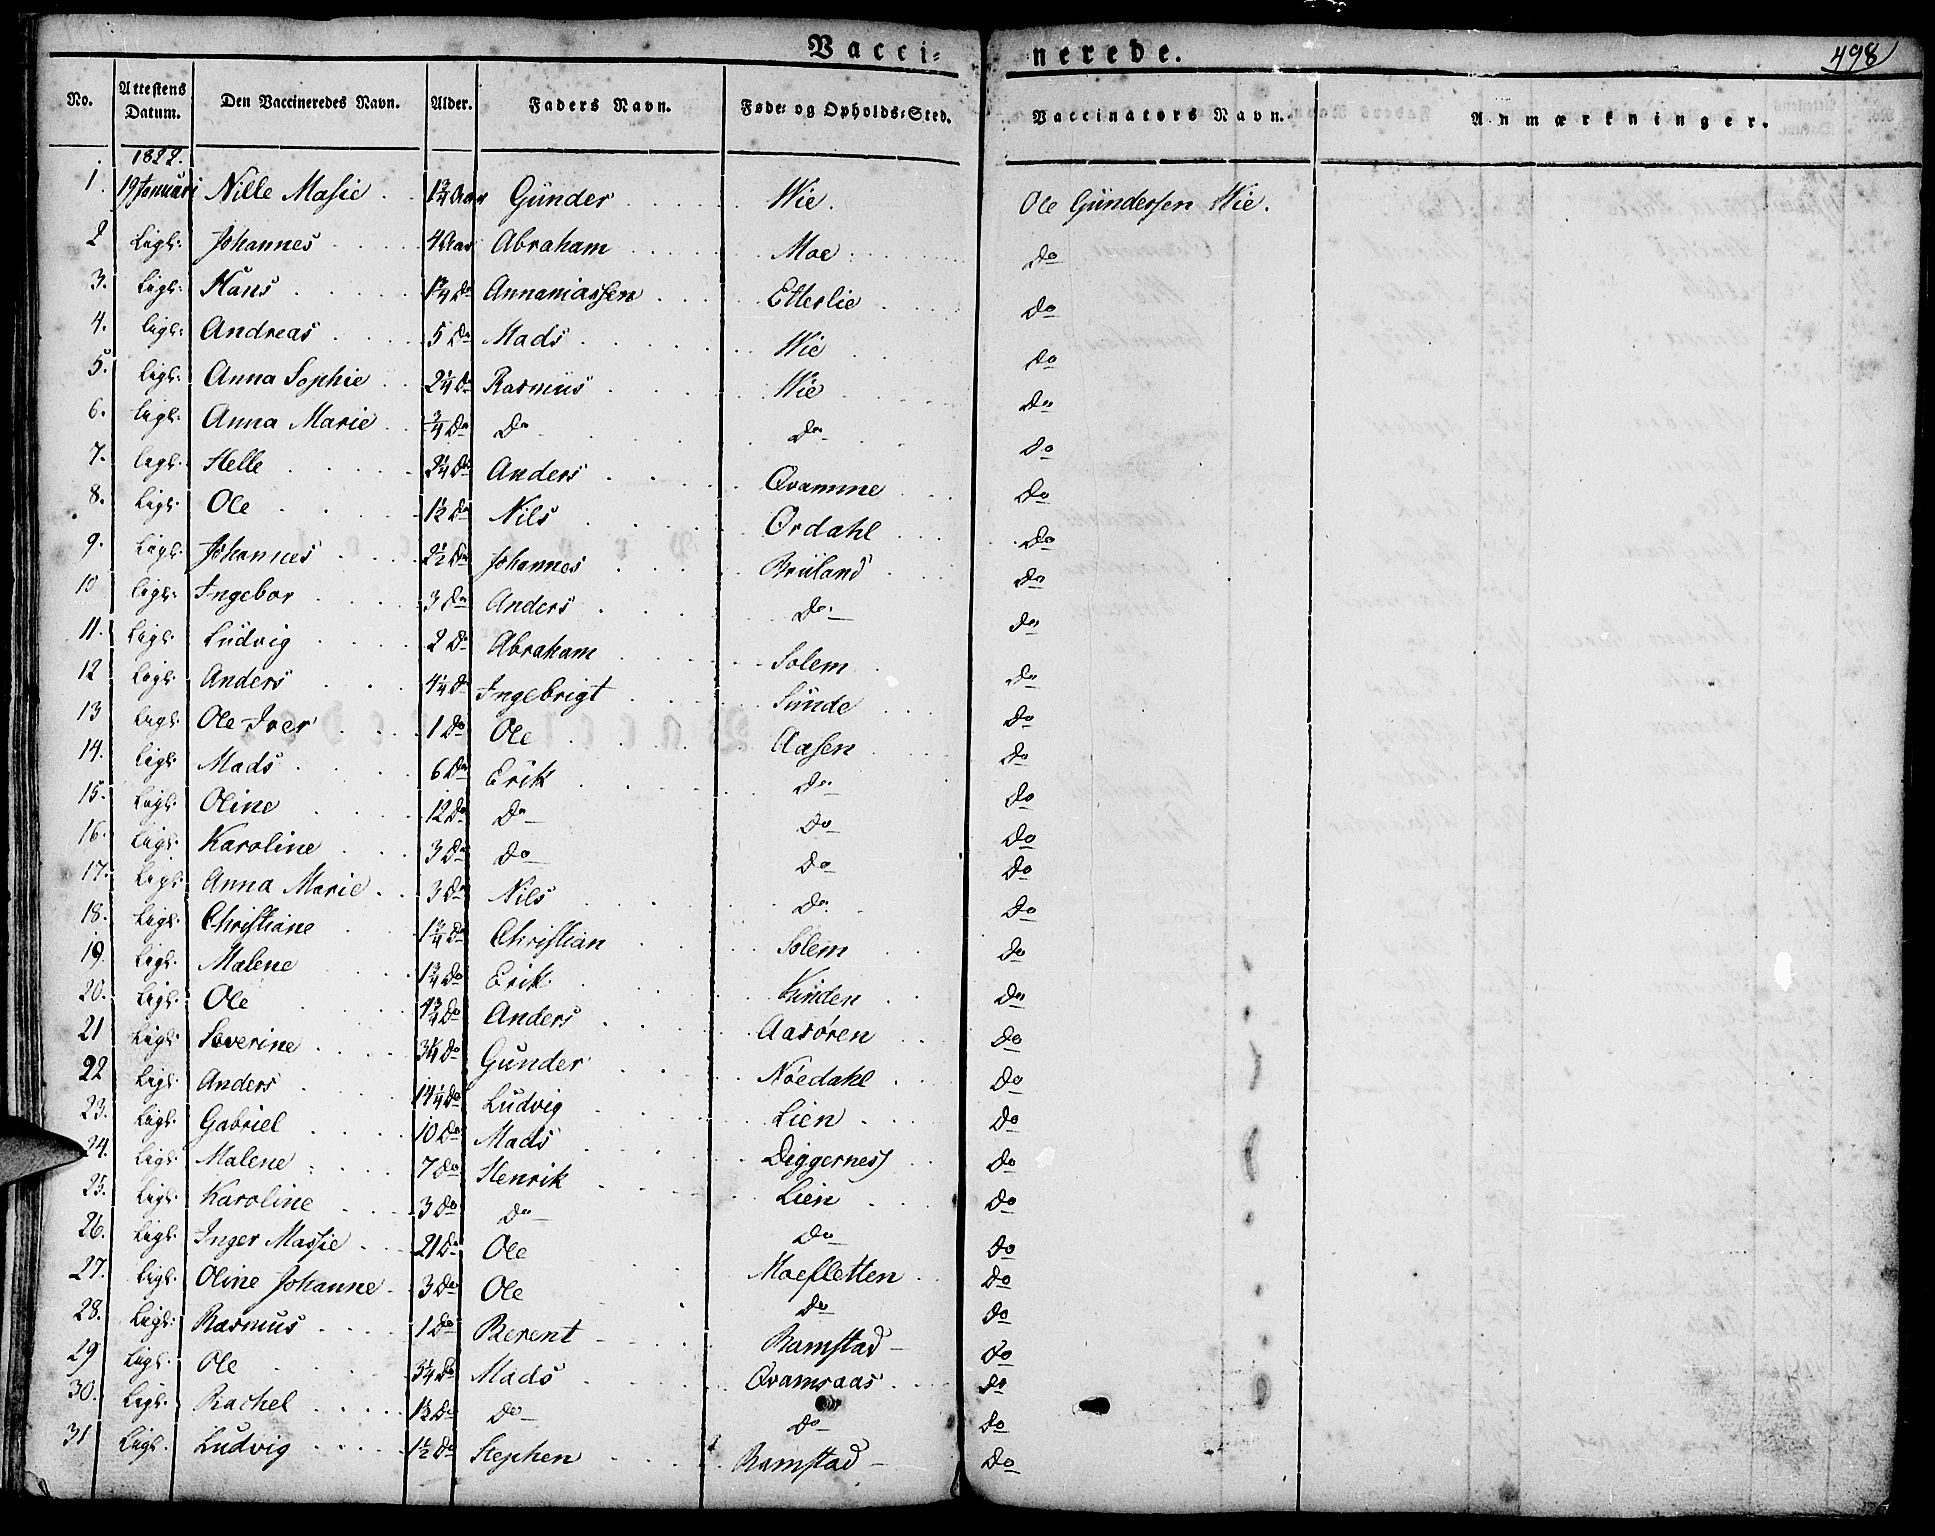 Vacci= nerede. 498
No. Attestens Datum. Den Vaccineredes Navn. Alder. Faders Navn. Føde= og Opholds=Sted. Vaccinators Navn. Anmærkninger.
1822.
1. 19 Januari Nille Masie 1 3/4 Aar Gunder Wie. Ole Gundersen Wie.
2 Ligl: Johannes 4 Aar Abraham Moe Do
3. Ligl: Hans 1 3/4 Do Annaniassen Etterlie Do
4. Ligl: Andreas 5 Do Mads Wie Do
5. Ligl: Anna Sophie 2 1/4 Do Rasmus Wie Do
6. Ligl: Anna Marie 3/4 Do Do Do Do
7. Ligl: Helle 2 1/4 Do Anders Qvamme Do
8. Ligl: Ole 1 1/2 Do Nils Ordahl Do
9. Ligl: Johannes 2 1/2 Do Johannes Bruland Do
10 Ligl: Ingebor 3 Do Anders Do Do
11. Ligl: Ludvig 2 Do Abraham Solem Do
12 Ligl: Anders 4 1/4 Do Ingebrigt Sunde Do
13 Ligl: Ole Iver 1 Do Ole Aasen Do
14. Ligl: Mads 6 Do Erik Do Do
15. Ligl: Oline 12 Do Do Do Do
16. Ligl: Karoline 3 Do Do Do Do
17. Ligl: Anna Marie 3 Do Nils Do Do
18. Ligl: Christiane 1 3/4 Do Christian Solem Do
19. Ligl: Malene 1 3/4 Do Erik Do
20. Ligl: Ole 4 3/4 Do Anders Aasøren Do
21 Ligl: Severine 3 1/4 Do Gunder Nøedahl Do
22 Ligl: Anders 14 1/4 Do Ludvig Lien Do
23. Ligl: Gabriel 10 Do Mads Diggernes Do
24. Ligl: Malene 7 Do Henrik Lien Do
25. Ligl: Karoline 3 Do Do Do Do
26. Ligl: Inger Massie 21 Do Ole Moesletten Do
27. Ligl: Oline Johanne 3 Do Ole Do Do
28. Ligl: Rasmus 1 Do Berent Ramstad Do
29 Ligl: Ole 5 1/4 Do Mads Qvamsaas Do
30. Ligl: Rachel 1 1/2 Do Do Do Do
31 Ligl. Ludvig 1 1/2 Do Stephen Ramstad Do